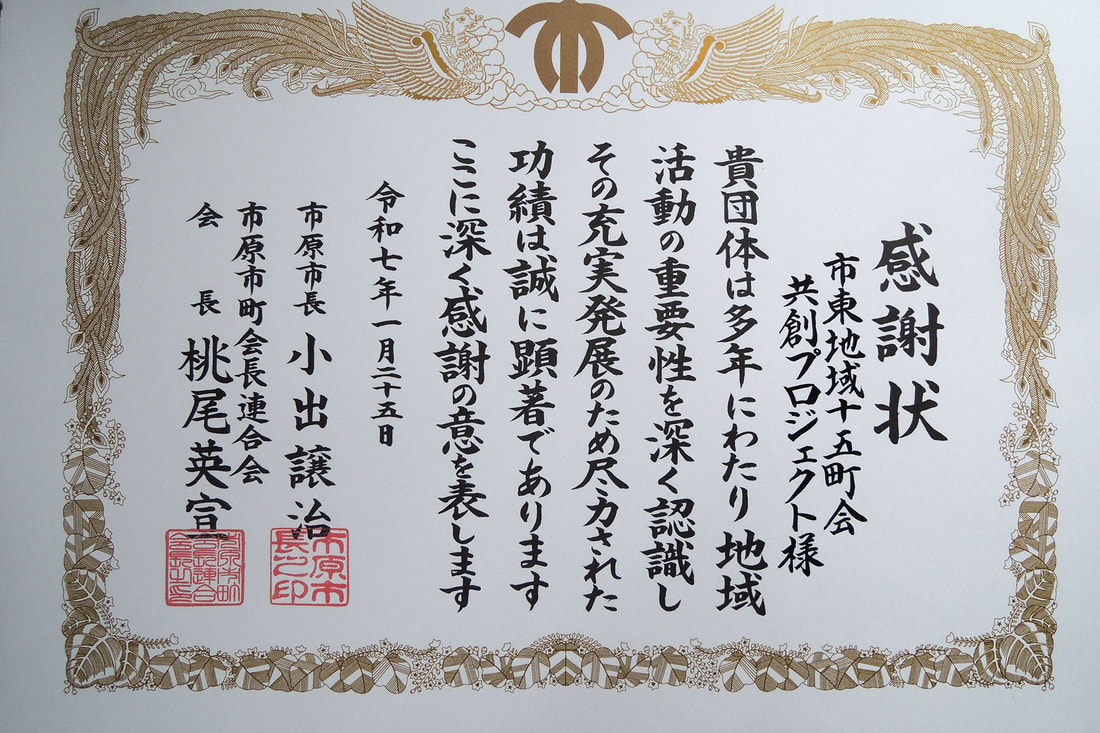 感謝状
市東地域十五町会
共創プロジェクト様
貴団体は多年にわたり地域
活動の重要性を深く認識し
その充実発展のため尽力された
功績は誠に顕著であります
ここに深く感謝の意を表します
令和七年一月二十五日
市原市長 小出譲治
市原市長之印
市原市町会長連合会
会長 桃尾英宣